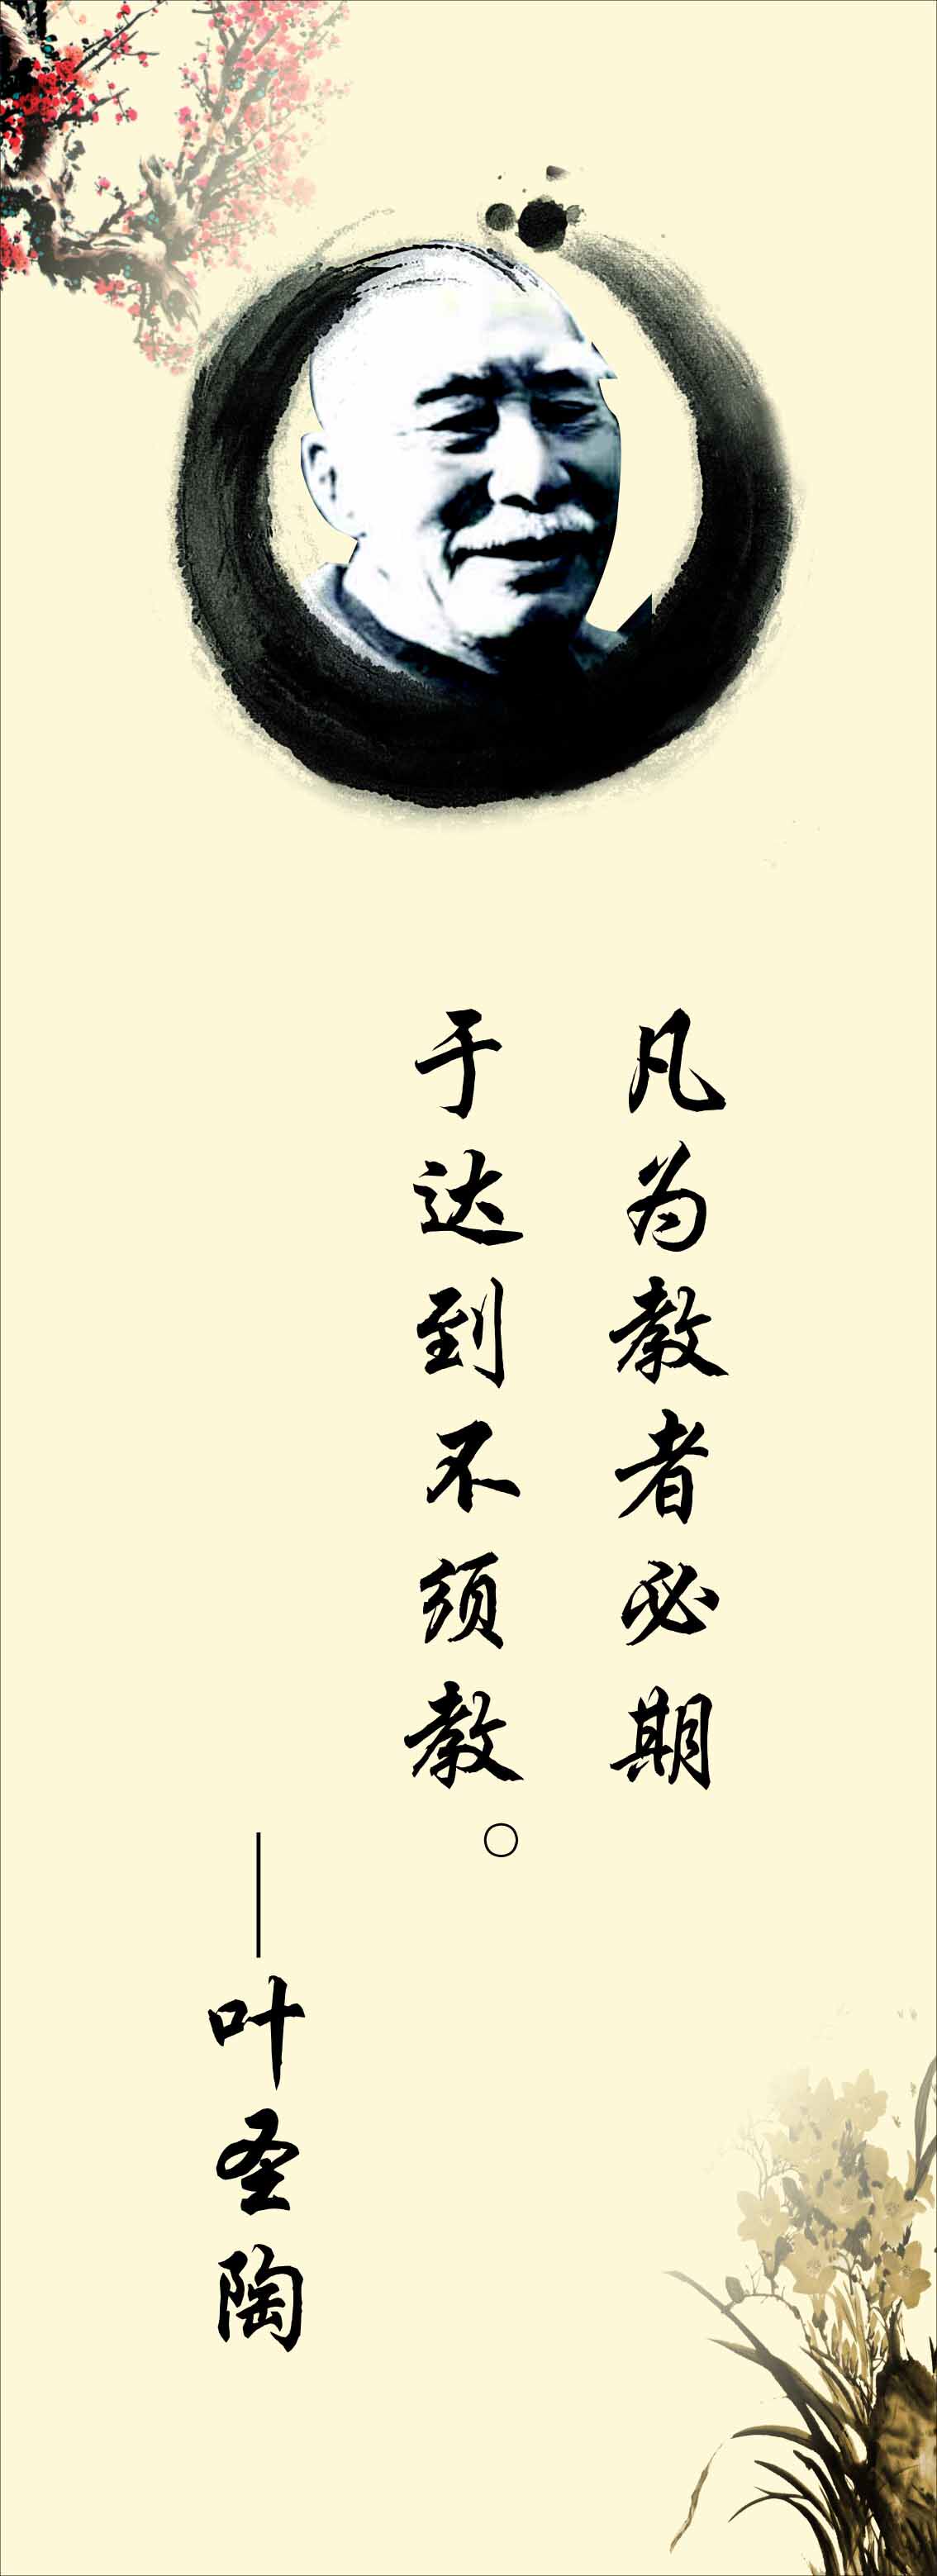 凡为教者必期
于达到不须教。
——叶圣陶